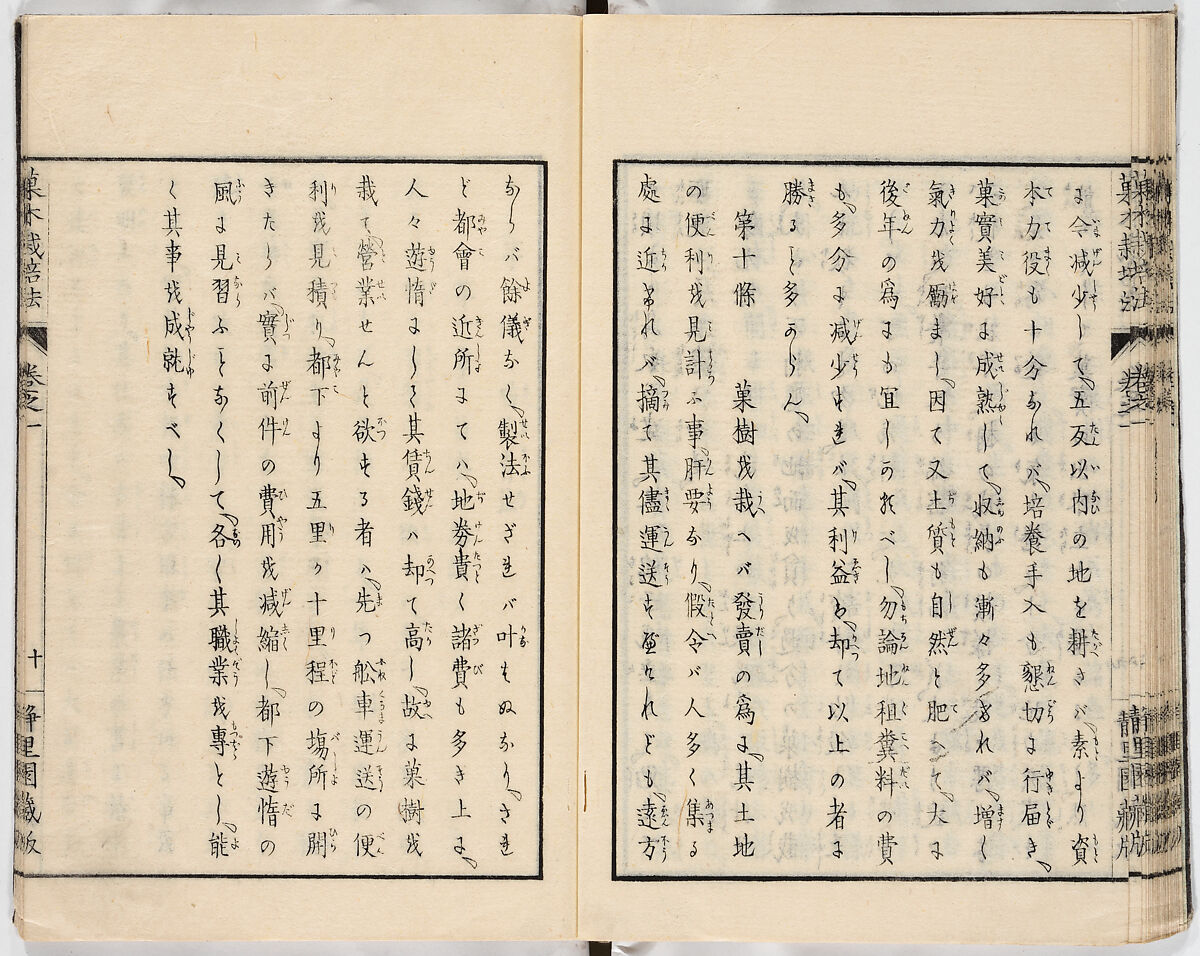 菓木栽培法
卷之一
靜里園藏版
に令減少して、五反以内の地を耕さバ、素より資
本力役も十分なれバ、培養手入も懇切に行届き、
菓實美好に成熟して、収納も漸々多けれバ、増く
氣力を勵まし、因て又土質も自然と肥へて、大に
後年の爲にも宜しかるべし、勿論地租糞料の費
も、多分に減少すれバ、其利益も、却て以上の者に
勝ること多からん、
第十條　菓樹を栽へバ發賣の爲に、其土地
の便利を見計ふ事、肝要なり、假令バ人多く集る
處に近けれバ、摘て其儘運送すべけれども、遠方
ならバ餘儀なく、製法せざれバ叶ハぬなり、され
ど都會の近所にてハ、地劵貴く諸費も多き上に、
人々遊惰にして其賃錢ハ却て高し、故に菓樹を
栽て、營業せんと欲する者ハ、先つ舩車運送の便
利を見積り、都下より五里か十里程の塲所に開
きたらバ、實に前件の費用を减縮し、都下遊惰の
風に見習ふことなくして、各く其職業を專とし、能
く其事を成就すべし、
菓木栽培法
卷之一
十
靜里園藏版